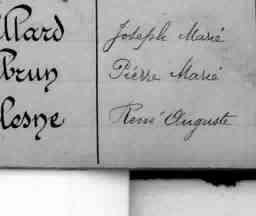 llard Joseph Marié
brun Piérre Marié
lesne René Auguste